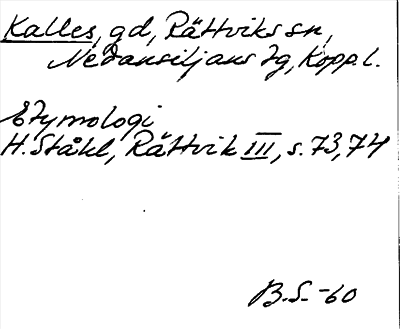 Kalles, gd, Rättviks sn,
Nedansiljans tg, Kopp.l.
Etymologi
H. Ståhl, Rättvik III, s. 73, 74
B.S. -60